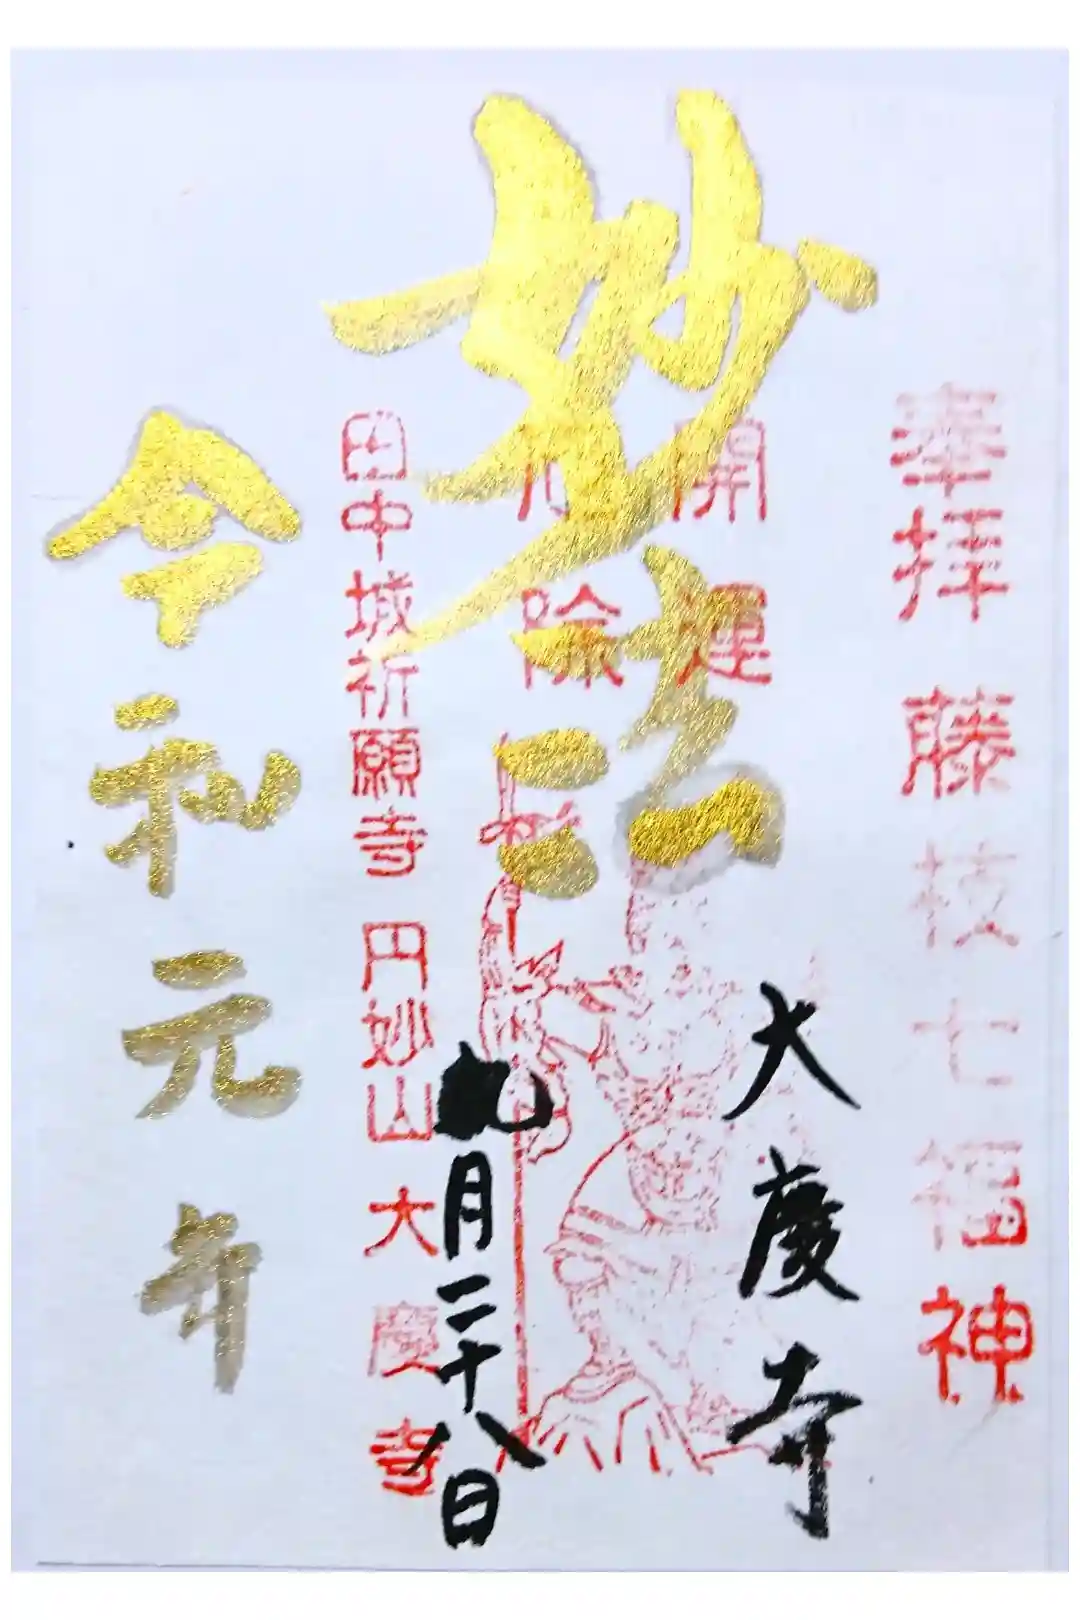 奉拝 藤枝七福神
開運
除
妙法
大慶寺
九月二十八日
田中城祈願寺 円妙山 大慶寺
令和元年